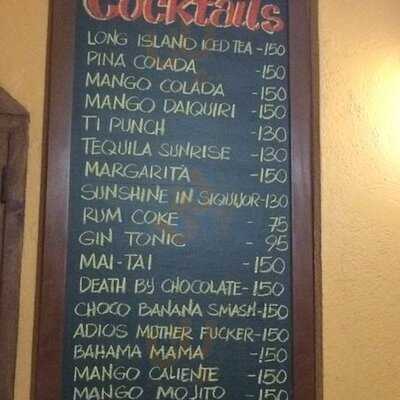 Cocktails
LONG ISLAND ICED TEA -150
PINA COLADA -150
MANGO COLADA -150
MANGO DAIQUIRI -150
TI PUNCH -130
TEQUILA SUNRISE -130
MARGARITA -150
SUNSHINE IN SIQUIJOR-130
RUM COKE - 75
GIN TONIC - 95
MAI-TAI -150
DEATH BY CHOCOLATE-150
CHOCO BANANA SMASH-150
ADIOS MOTHER FUCKER-150
BAHAMA MAMA -150
MANGO CALIENTE -150
MANGO MOJITO -150